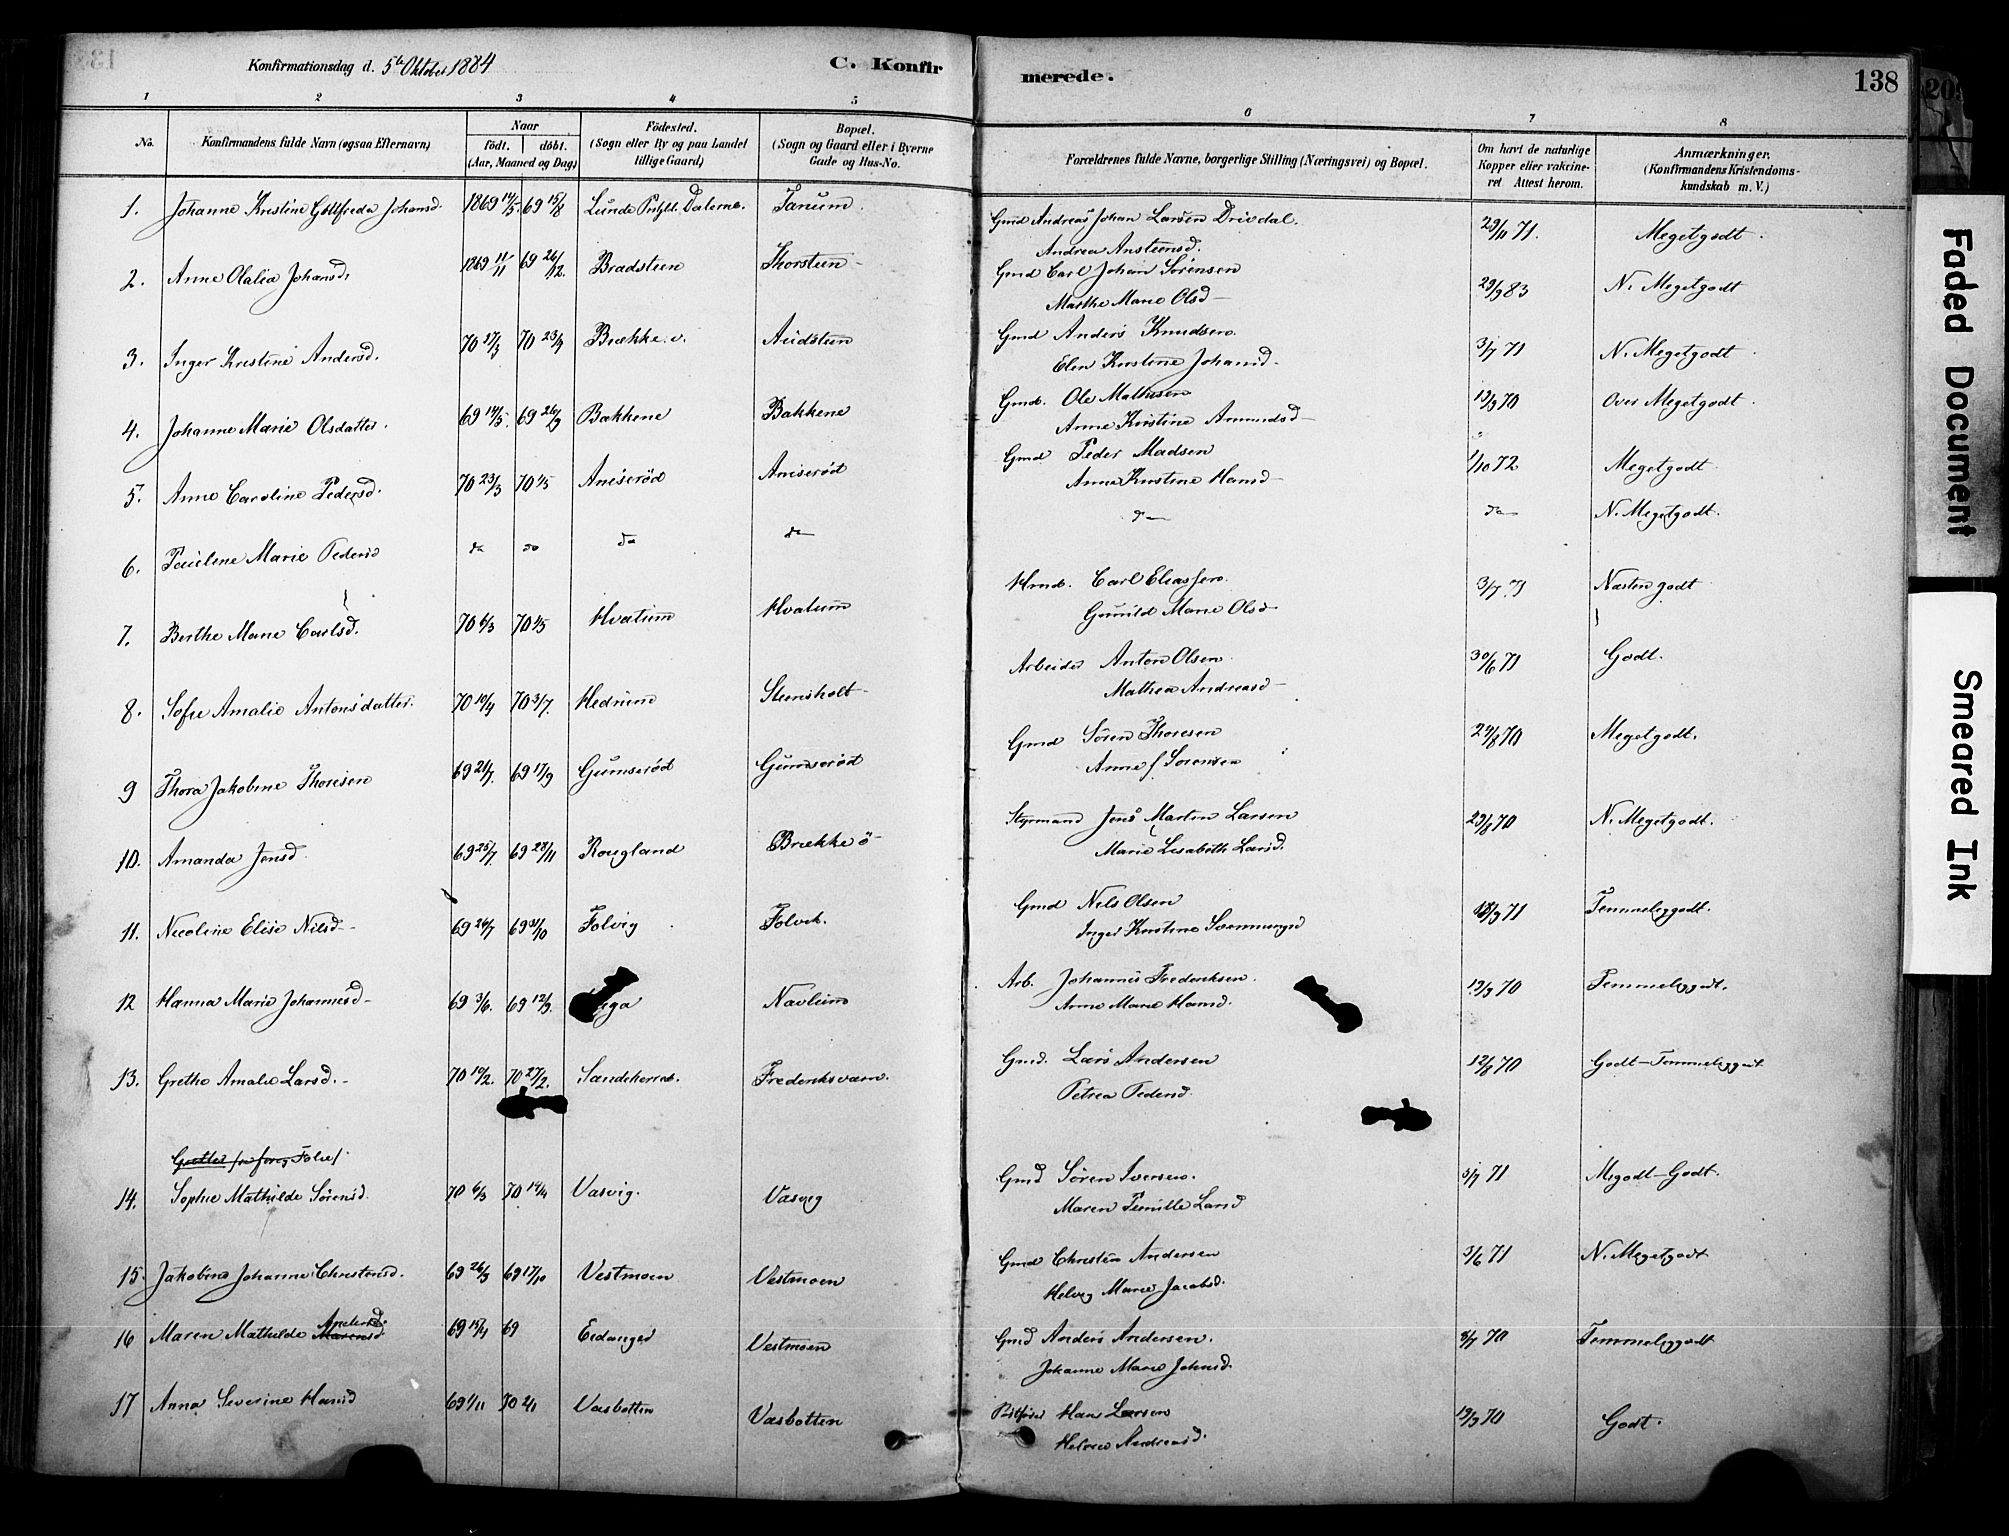 Konfirmationsdag d. 5te Oktober 1884
C. Konfirmerede.
138
1 2 3 4 5 6 7 8
No.
Konfirmandens fulde Navn (ogsaa Efternavn)
Naar
födt. döbt.
(Aar, Maaned og Dag)
Födested.
(Sogn eller By og paa Landet
tillige Gaard)
Bopæl.
(Sogn og Gaard eller i Byerne
Gade og Hus-No.
Forældrenes fulde Navne, borgerlige Stilling (Næringsvei) og Bopæl.
Om havt de naturlige
Kopper eller vakcine-
ret Attest herom.
Anmærkninger.
(Konfirmandens Kristendoms-
kundskab m. V.)
1. Johanne Kristine Gottfreda Johansd. 1869 14/5. 69 15/8 Lunde Dalerne. Tanum. Gmd Andreas Johan Larsen Drivdal. 29/11 71. Megetgodt.
Andrea Anstensd.
2. Anne Olalia Johansd. 1869 11/11 69 26/12. Bradsteen Thorsteen Gmd Carl Johan Sörensen 29/9 83 N. Megetgodt
Marthe Marie Olsd
3. Inger Kristine Andersd. 70 27/3 70 23/4 Brække. v. Audsteen Gmd Anders Knudsen. 3/7 71 N. Megetgodt.
Elen Kristine Johansd.
4. Johanne Marie Olsdatter. 69 14/5. 69 26/9 Bakkene Bakkene Gmd. Ole Mathisen 13/9 70 Over Megetgodt.
Anne Kristine Amundsd
5. Anne Caroline Pedersd. 70 23/3 70 1/5 Aniserød Aniserød Gmd Peder Madsen 1/10 72 Megetgodt
Anne Kirstine Hansd
6. Paulene Marie Pedersd do do do do do do N. Megetgodt.
7. Berthe Marie Carlsd. 70 6/3 70 1/5 Hvatum Hvatum Hmd. Carl Eliassen. 3/7 71 Næsten godt
Gunild Marie Olsd
8. Sofie Amalie Antonsdatter. 70 10/4 70 3/7. Hedrum Steensholt Arbeider Anton Olsen. 30/6 71 Godt.
Mathea Andreasd
9 Thora Jakobine Thoresen 69 21/7. 69 17/9 Gumserød Gumserød Gmd Sören Thoresen 24/8 70 Megetgodt.
Anne f. Sorensen
10. Amanda Jensd. 69 25/7 69 28/11 Rougland Brække ö Styrmand Jens Martin Larsen 29/8 70 N. Megetgodt.
Marie Lisabeth Larsd.
11. Nicoline Elise Nilsd 69 26/7 69 31/10 Folvig Folvik. Gmd Nils Olsen 18/9 71 Temmeliggodt.
Inger Kirstine
12 Hanna Marie Johannesd 69 3/6. 69 12/9. Navlum Arb. Johannes Frederiksen. 12/9 70 Temmeliggodt.
Anne Marie Hansd.
13. Grethe Amalie Larsd. 70 10/2. 70 27/2. Sandeherred. Frederiksværn. Gmd. Lars Andersen 12/8 70 Godt-Temmeliggodt
Petrea Pedersd.
14. Sophie Mathilde Sörensd. 70 6/3 70 14/4 Vasvig. Vasvig Gmd Sören Iversen. 3/7 71 Megodt-Godt.
Maren Pernille Larsd
15. Jakobine Johanne Christensd. 69 26/3 69 17/10 Vestmoen Vestmoen Gmd Christen Andersen 3/6 71 N. Megetgodt
Helvig Marie Jacobsd.
16 Maren Mathilde Andersd. 69 15/4 69 Eidanger Vestmoen Gmd Anders Andersen. 8/7 70 Temmeliggodt
Johanne Marie Johnsd.
17 Anna Severine Hansd 69 1/11 70 2/1 Vasbotten Vasbotten Hans Larsen 19/9 70 Godt.
Andreasd.
Faded Document
Smeared Ink